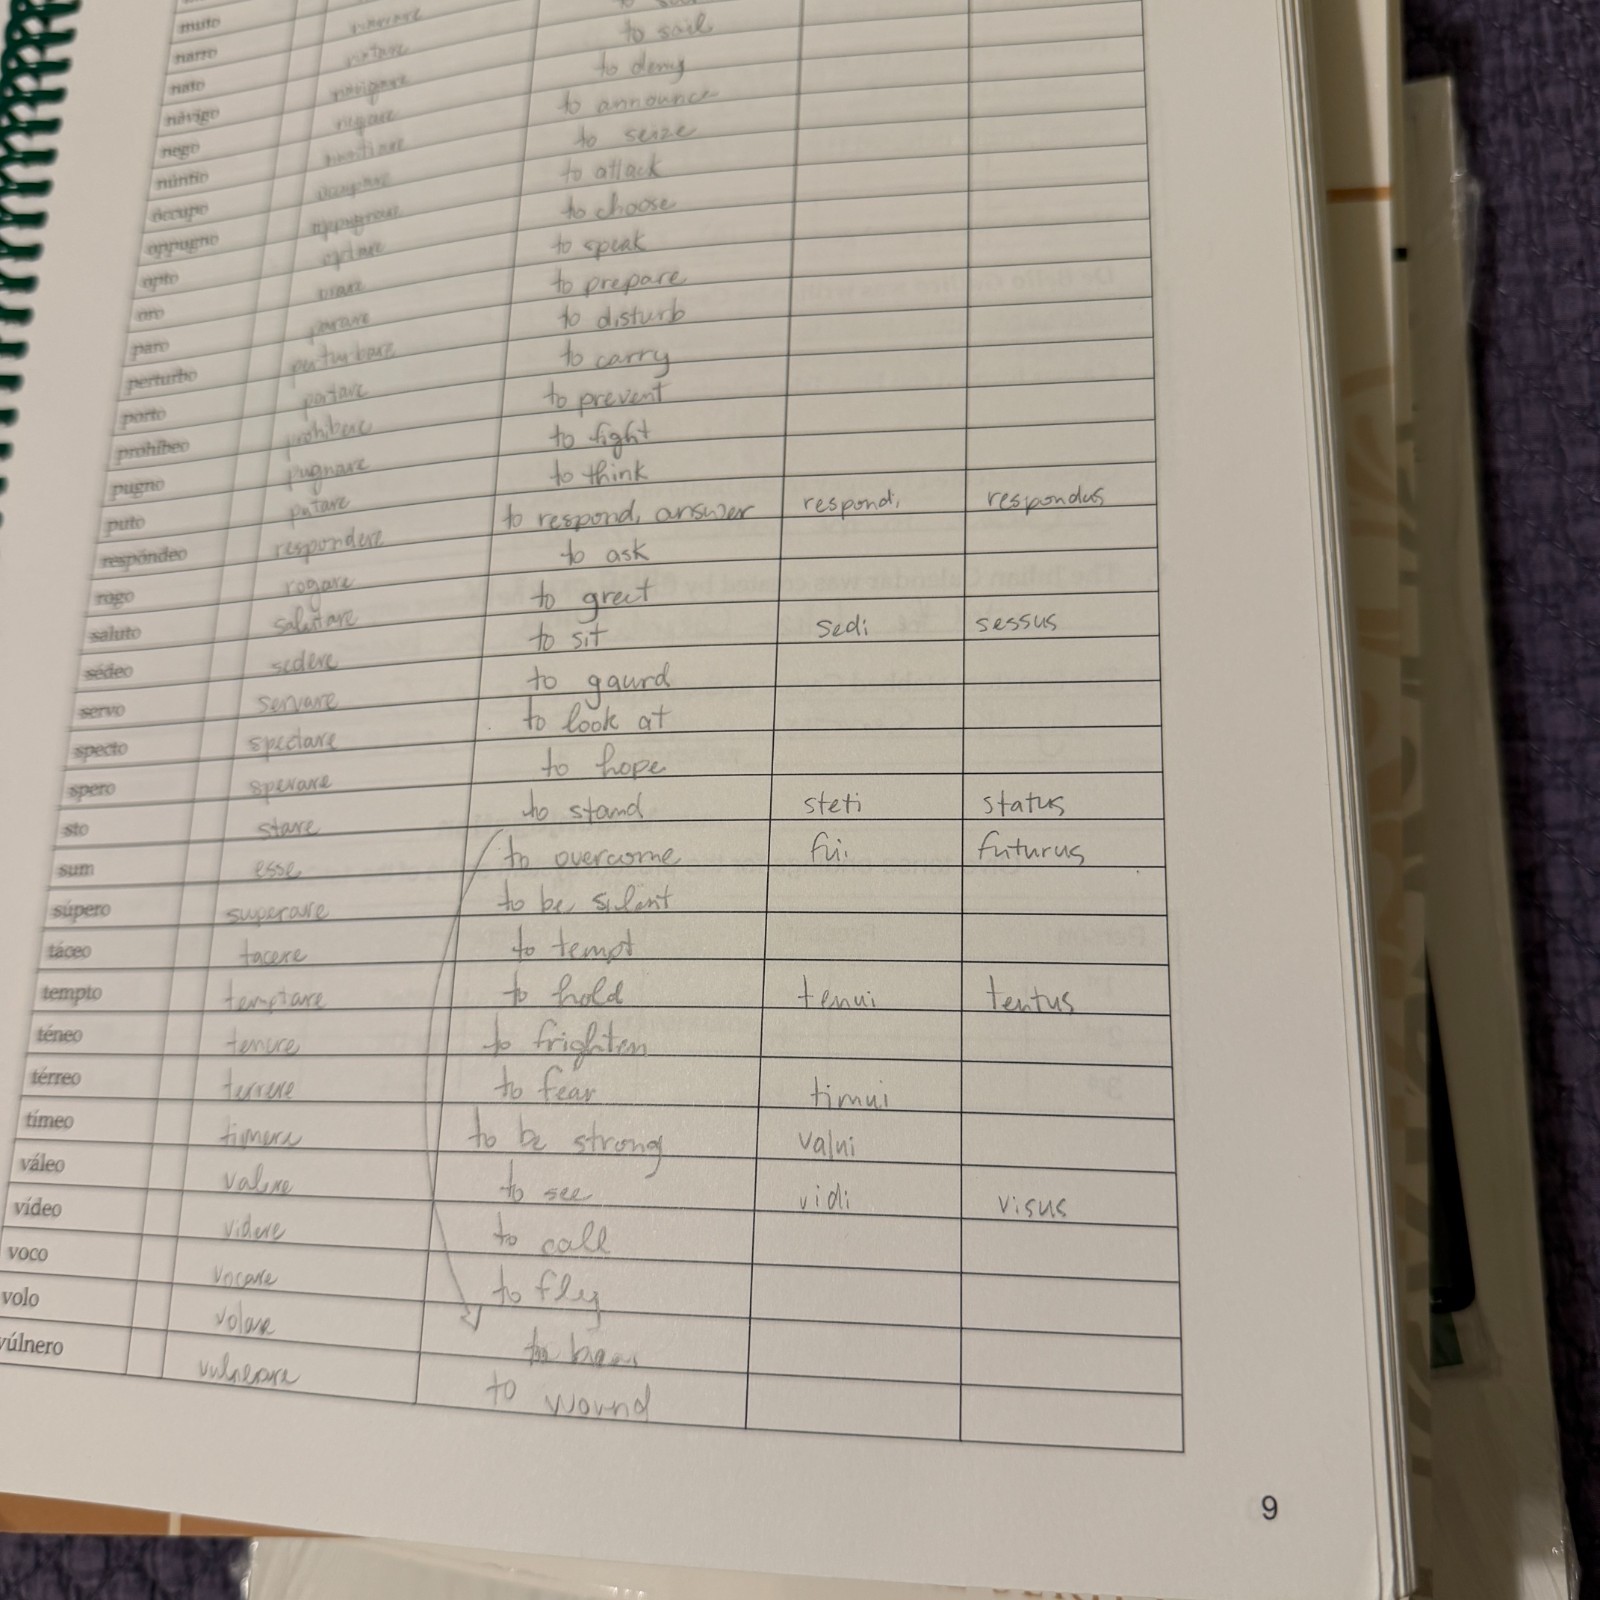 muto
narro narrare
nato natare
návigo navigare to sail
nego negare to deny
núntio nuntiare to announce
óccupo occupare to seize
oppugno oppugnare to attack
opto optare to choose
oro orare to speak
paro parare to prepare
perturbo perturbare to disturb
porto portare to carry
prohíbeo prohibere to prevent
pugno pugnare to fight
puto putare to think
respóndeo respondere to respond, answer respondi respondus
rogo rogare to ask
saluto salutare to greet
sédeo sedere to sit sedi sessus
servo servare to gaurd
specto spectare to look at
spero sperare to hope
sto stare to stand steti status
sum esse to overcome fui futurus
súpero superare to be silent
táceo tacere to tempt
tempto temptare to hold tenui tentus
téneo tenere to frighten
térreo terrere to fear timui
tímeo timere to be strong valui
váleo valere to see vidi visus
vídeo videre to call
voco vocare to fly
volo volare
vúlnero vulnerare to wound
9